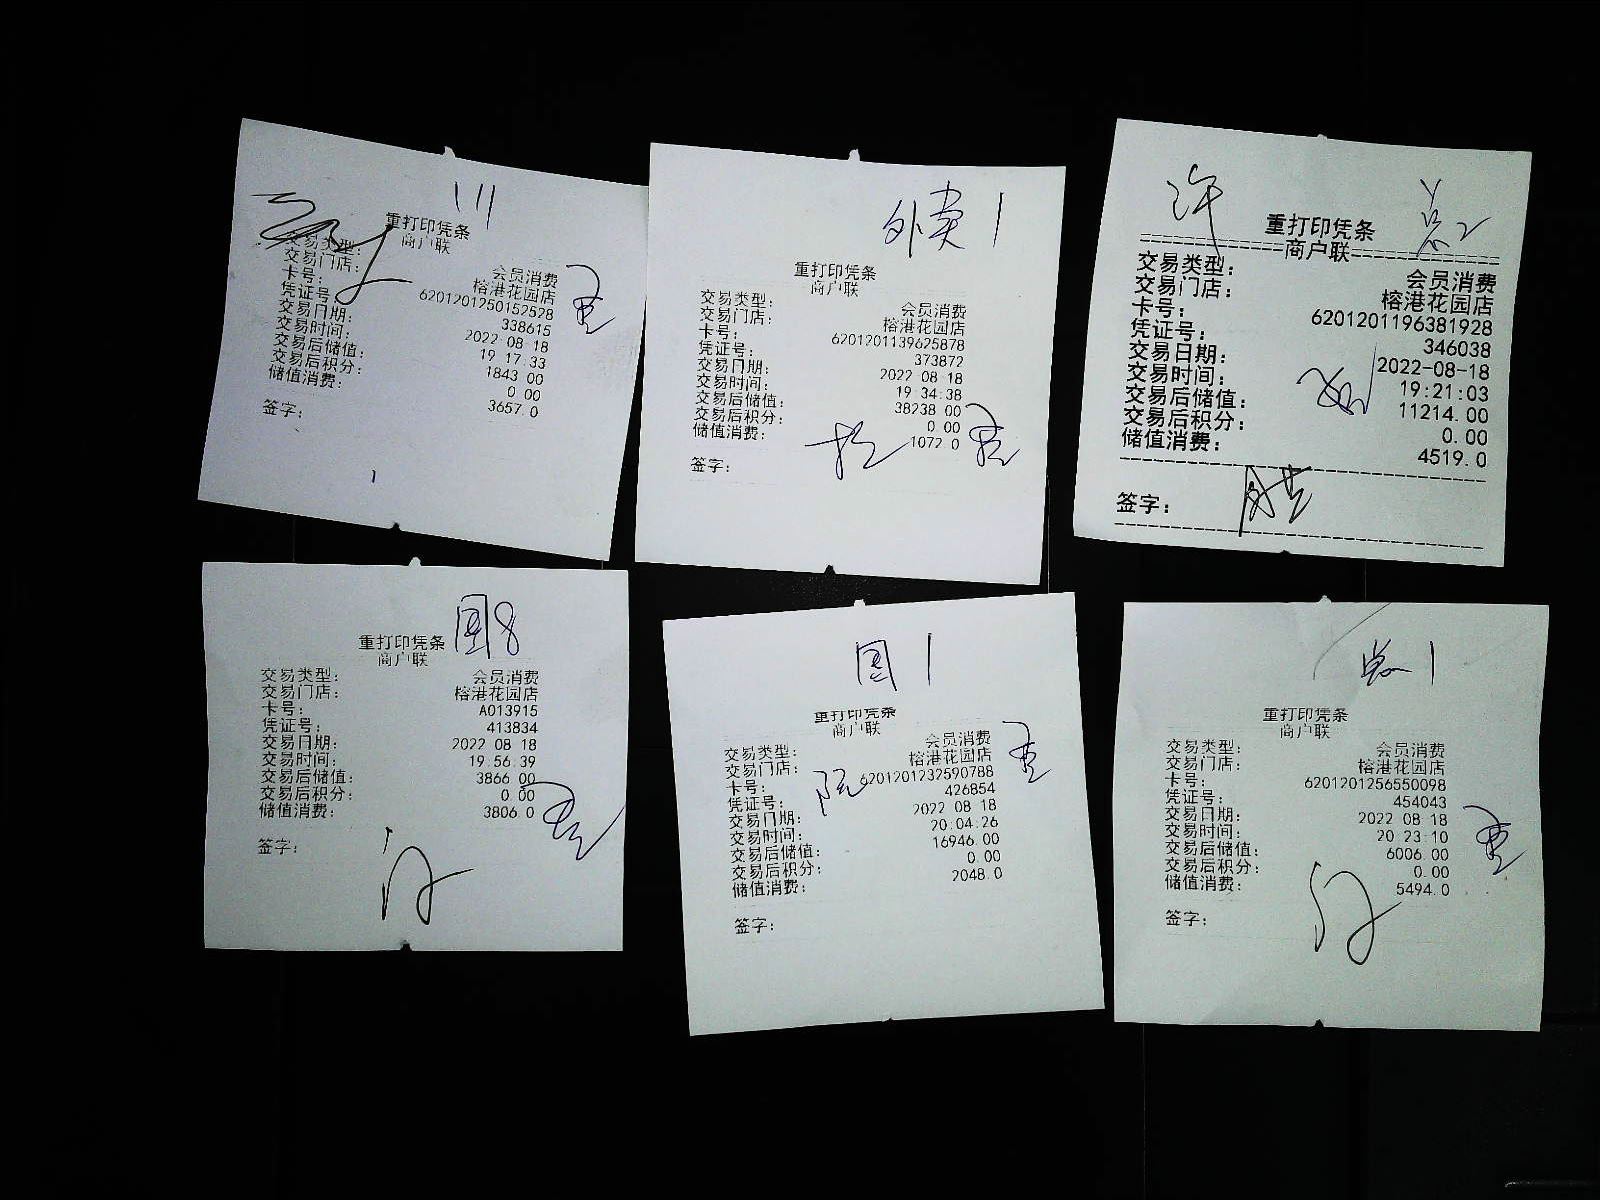 111
重打印凭条
商户联
交易类型： 会员消费
交易门店： 榕港花园店
卡号： 6201201250152528
凭证号： 338615
交易日期： 2022 08 18
交易时间： 19 17 33
交易后储值： 1843 00
交易后积分： 0 00
储值消费： 3657.0
签字：
外卖1
重打印凭条
商户联
交易类型： 会员消费
交易门店： 榕港花园店
卡号： 6201201139625878
凭证号： 373872
交易日期： 2022 08 18
交易时间： 19 34 38
交易后储值： 38238 00
交易后积分： 0 00
储值消费： 1072 0
签字：
许
总2
重打印凭条
商户联
交易类型： 会员消费
交易门店： 榕港花园店
卡号： 6201201196381928
凭证号： 346038
交易日期： 2022-08-18
交易时间： 19:21:03
交易后储值： 11214.00
交易后积分： 0.00
储值消费： 4519.0
签字：
图8
重打印凭条
商户联
交易类型： 会员消费
交易门店： 榕港花园店
卡号： A013915
凭证号： 413834
交易日期： 2022 08 18
交易时间： 19 56 39
交易后储值： 3866 00
交易后积分： 0 00
储值消费： 3806 0
签字：
图1
重打印凭条
商户联
交易类型： 会员消费
交易门店： 榕港花园店
卡号： 6201201232590788
凭证号： 426854
交易日期： 2022 08 18
交易时间： 20.04.26
交易后储值： 16946.00
交易后积分： 0.00
储值消费： 2048.0
签字：
总1
重打印凭条
商户联
交易类型： 会员消费
交易门店： 榕港花园店
卡号： 6201201256550098
凭证号： 454043
交易日期： 2022 08 18
交易时间： 20 23 10
交易后储值： 6006 00
交易后积分： 0.00
储值消费： 5494.0
签字：